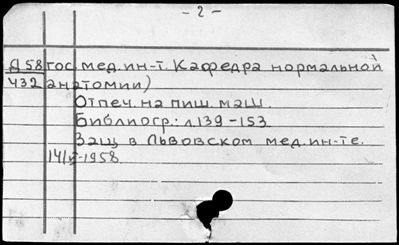 - 2 -
Д58 гос. мед. ин-т. Кафедра нормальной
432 анатомии)
Отпеч. на пиш. маш.
Библиогр.: л. 139-153.
Защ в Львовском мед. ин-те.
14/V-1958